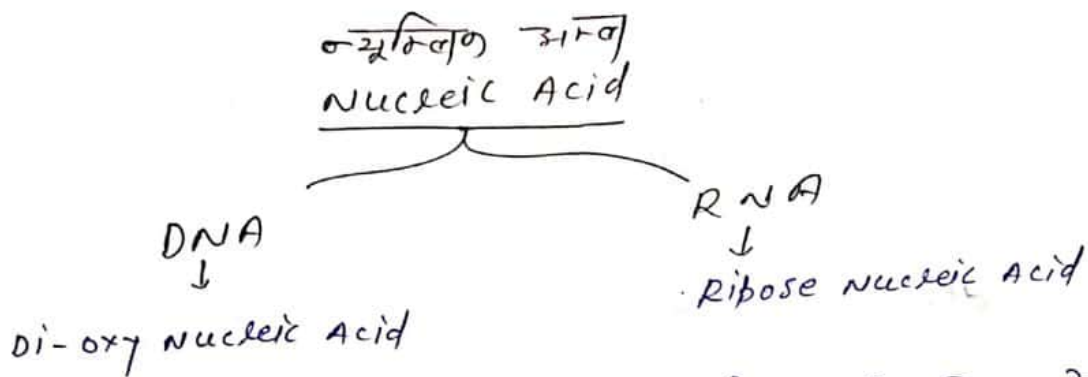 न्यूक्लिक अम्ल
Nucleic Acid
DNA
RNA
↓
↓
Di-oxy Nucleic Acid
Ribose Nucleic Acid